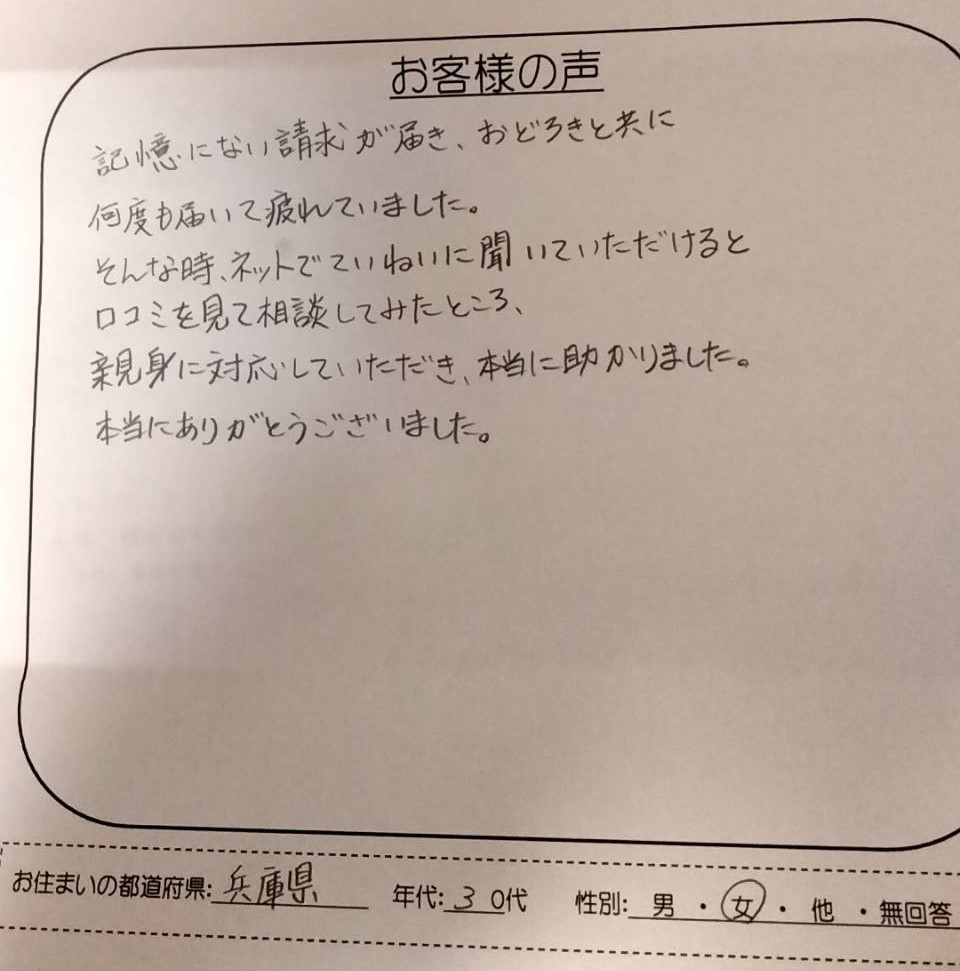 お客様の声
記憶にない請求が届き、おどろきと共に
何度も届いて疲れていました。
そんな時、ネットでていねいに聞いていただけると
口コミを見て相談してみたところ、
親身に対応していただき、本当に助かりました。
本当にありがとうございました。
お住まいの都道府県: 兵庫県 年代: 30代 性別: 男 ・ 女 ・ 他 ・ 無回答